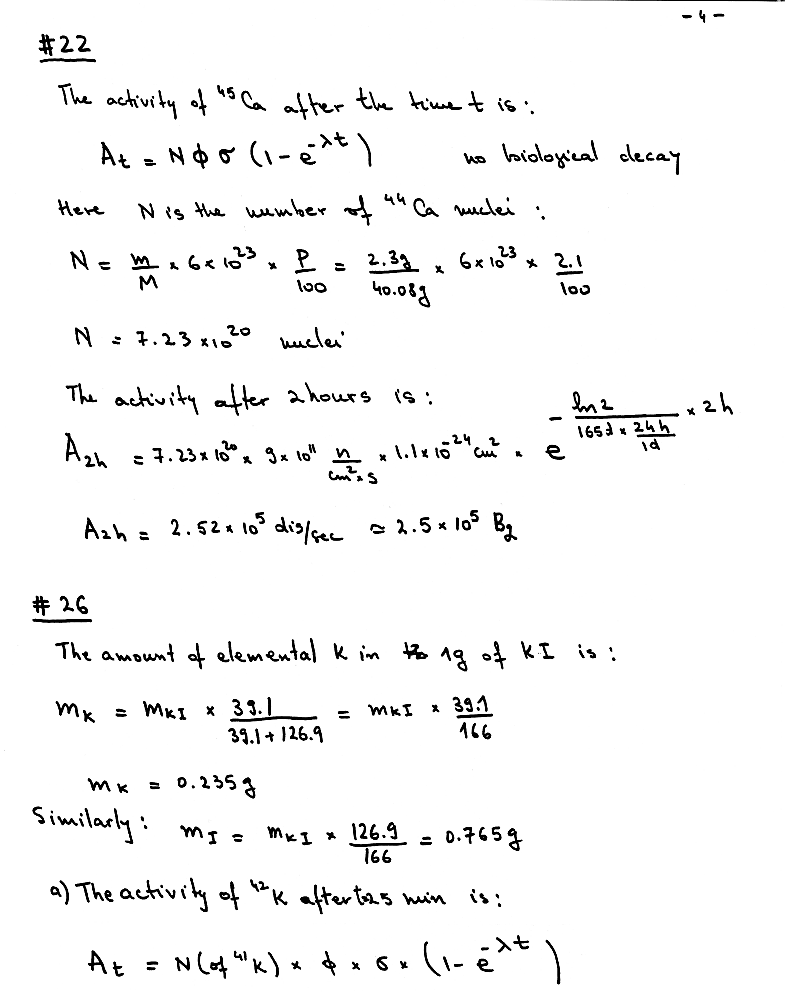 - 4 -
#22
The activity of ⁴⁵Ca after the time t is:
A_t = N ϕ σ (1 - e^{-λt}) no biological decay
Here N is the number of ⁴⁴Ca nuclei:
N = m/M × 6×10²³ × P/100 = 2.3g/40.08g × 6×10²³ × 2.1/100
N = 7.23 ×10²⁰ nuclei
The activity after 2 hours is:
A_{2h} = 7.23×10²⁰ × 9×10¹¹ n/cm²×s × 1.1×10⁻²⁴ cm² × e^{- ln2/(165d × 24h/1d) × 2h}
A_{2h} = 2.52×10⁵ dis/sec ≃ 2.5×10⁵ Bq
#26
The amount of elemental K in 1g of KI is:
m_K = m_{KI} × 39.1/(39.1+126.9) = m_{KI} × 39.1/166
m_K = 0.235g
Similarly: m_I = m_{KI} × 126.9/166 = 0.765g
a) The activity of ⁴²K after t=25 min is:
A_t = N(of ⁴¹K) × ϕ × σ × (1 - e^{-λt})